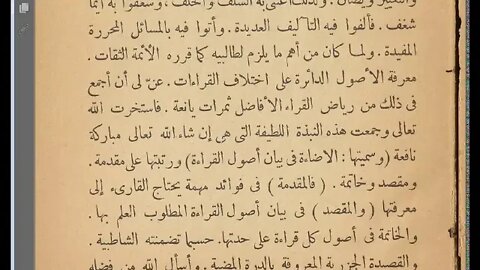 والتغيير ولذلك اعتنى به السلف والخلف . وشغفوا به أيما
شغف . فألفوا فيه التآليف العديدة . وأتوا فيه بالمسائل المحررة
المفيدة . ولما كان من أهم ما يلزم لطالبيه كما قرره الأئمة الثقات .
معرفة الأصول الدائرة على اختلاف القراءات . عنّ لى أن أجمع
فى ذلك من رياض القراء الأفاضل ثمرات يانعة . فاستخرت الله
تعالى وجمعت هذه النبذة اللطيفة التى هى إن شاء الله تعالى مباركة
نافعة ( وسميتها : الاضاءة فى بيان أصول القراءة ) ورتبتها على مقدمة .
ومقصد وخاتمة . ( فالمقدمة ) فى فوائد مهمة يحتاج القارىء إلى
معرفتها ( والمقصد ) فى بيان أصول القراءة المطلوب العلم بها .
والخاتمة فى أصول كل قراءة على حدتها . حسبما تضمنته الشاطبية .
والقصيدة الجزرية المعروفة بالدرة المضية . وأسأل الله من فضله